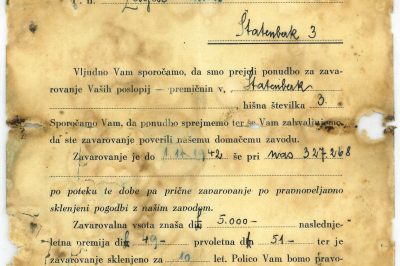 Štatenberk 3
Vljudno Vam sporočamo, da smo prejeli ponudbo za zava-
rovanje Vaših poslopij — premičnin v, Štatenberk
hišna številka 3.
Sporočamo Vam, da ponudbo sprejmemo ter se Vam zahvaljujemo,
da ste zavarovanje poverili našemu domačemu zavodu.
Zavarovanje je do 1942 še pri vas 327.268
po poteku te dobe pa prične zavarovanje po pravnoveljavno
sklenjeni pogodbi z našim zavodom.
Zavarovalna vsota znaša din 5.000- naslednje-
letna premija din 49- prvoletna din 51- ter je
zavarovanje sklenjeno za 10 let. Polico Vam bomo pravo-